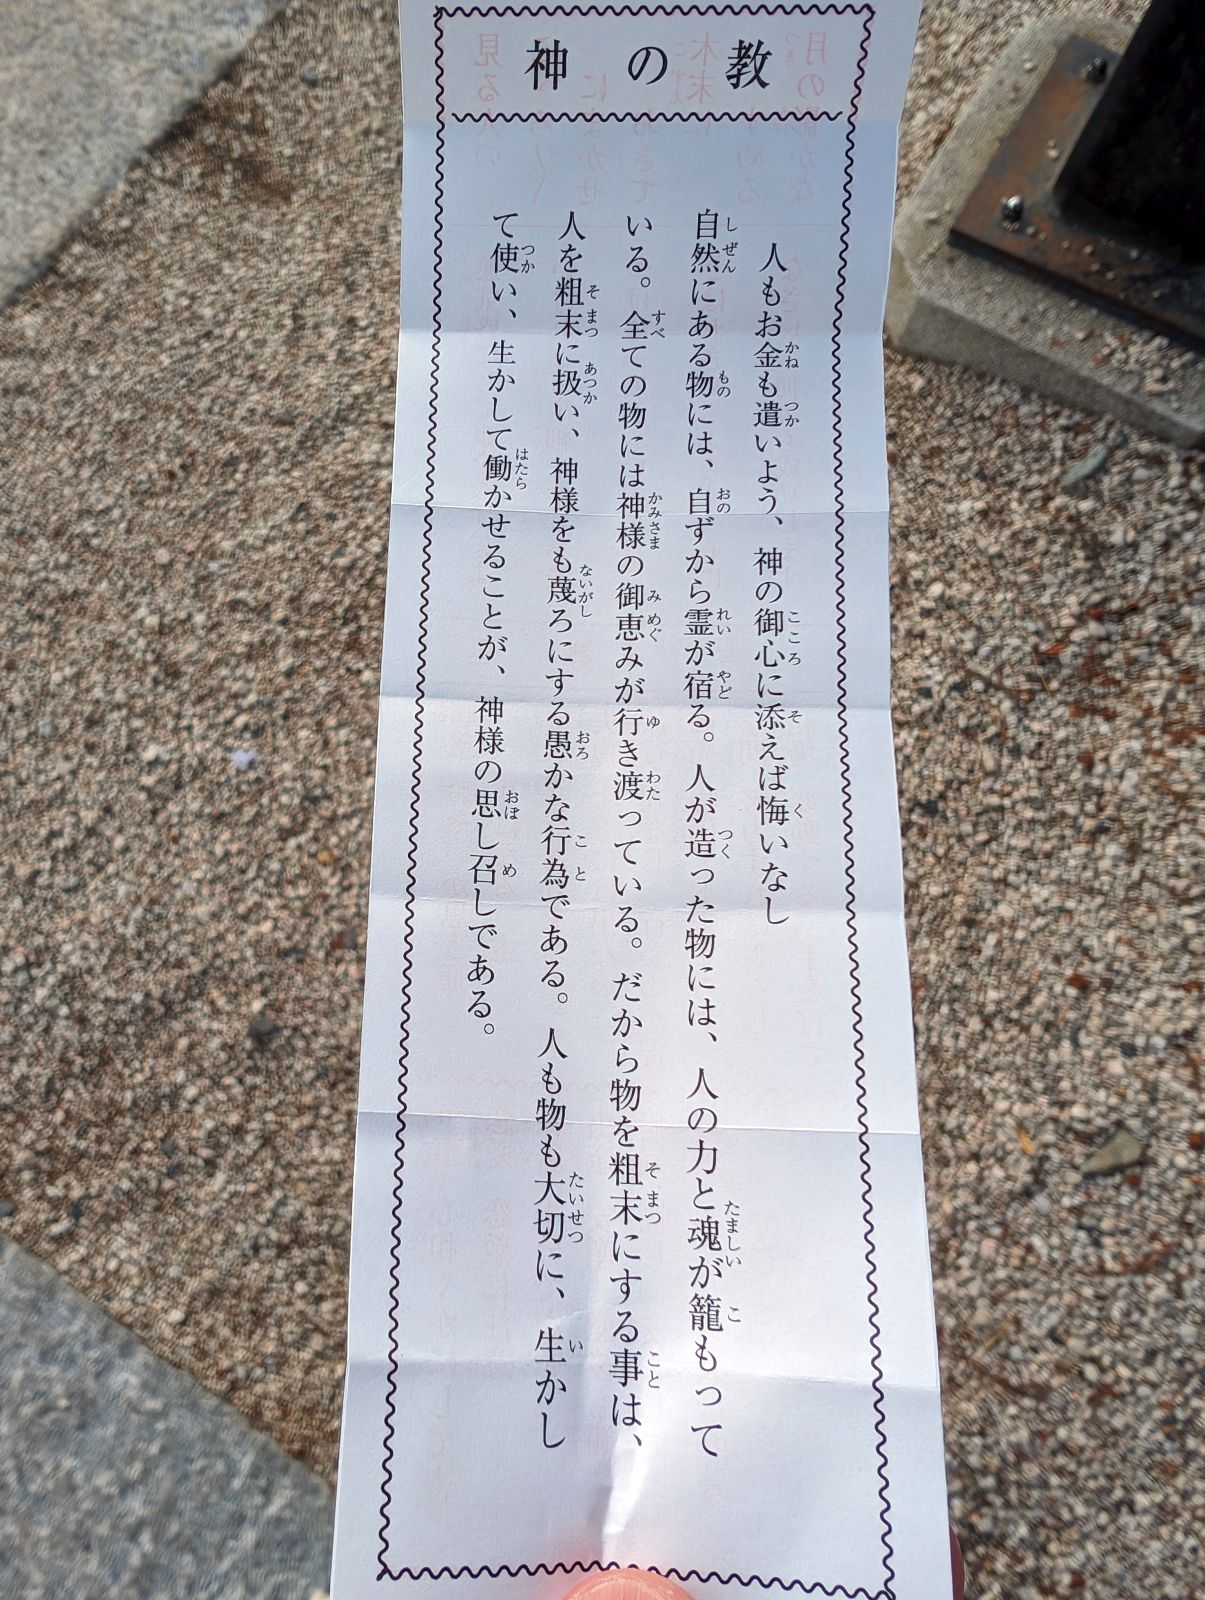 神の教
人もお金も遣いよう、神の御心に添えば悔いなし
自然にある物には、自ずから霊が宿る。人が造った物には、人の力と魂が籠もって
いる。全ての物には神様の御恵みが行き渡っている。だから物を粗末にする事は、
人を粗末に扱い、神様をも蔑ろにする愚かな行為である。人も物も大切に、生かし
て使い、生かして働かせることが、神様の思し召しである。